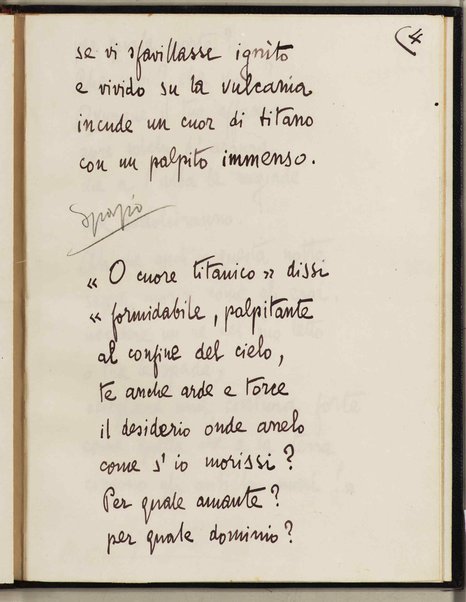 4
se vi sfavillasse ignito
e vivido su la vulcania
incude un cuor di titano
con un palpito immenso.
Spazio
« O cuore titanico » dissi
« formidabile, palpitante
al confine del cielo,
te anche arde e torce
il desiderio onde anelo
come s' io morissi?
Per quale amante?
per quale dominio?